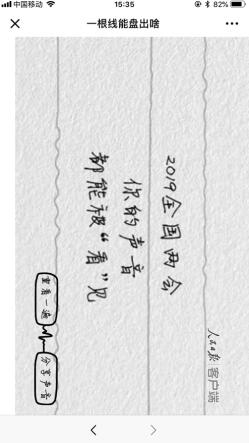 中国移动
15:35
82%
一根线能盘出啥
2019全国两会
你的声音
都能被“看”见
人民日报 客户端
重看一遍
分享声音